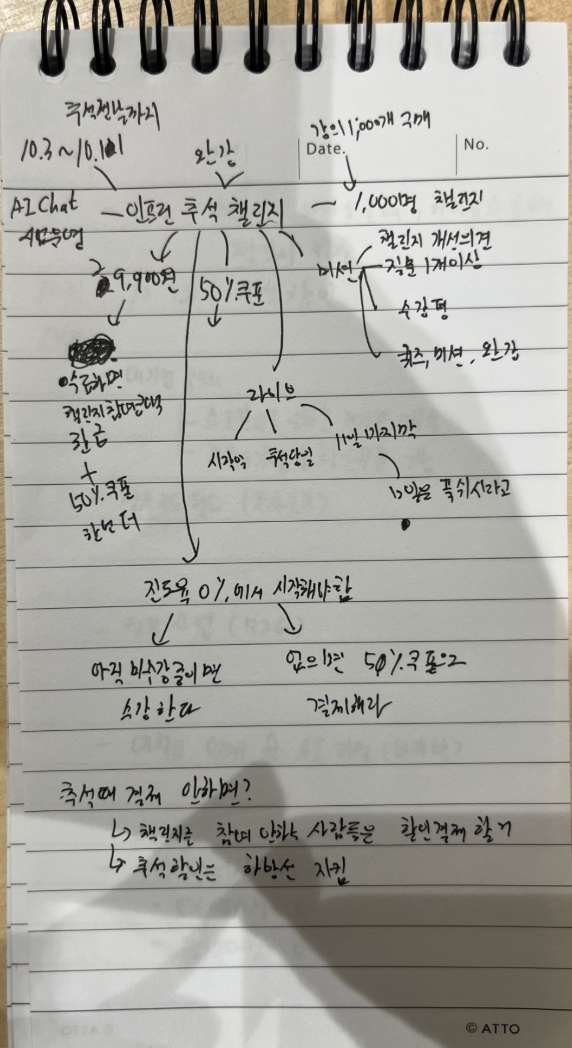 추석전날까지
강의 1,000개 구매
10.3~10.11
완강
Date.
No.
AI Chat
인프런 추석 챌린지 - 1,000명 챌린지
챌린지 개선의견
미션
질문 1개이상
29,900원
50% 쿠폰
수강평
퀴즈, 미션, 완강
하면
챌린지 참여금액
라이브
환급
11일 마지막
시작일
추석당일
+
50% 쿠폰
12일은 푹 쉬시라고
한번 더
진도율 0%에서 시작해야함
아직 미수강중이면
없으면 50% 쿠폰으로
수강한다
결제해라
추석때 결제 안하면?
↳ 챌린지를 참여 안하는 사람들은 할인결제 할거
↳ 추석할인은 하방선 지킴
© ATTO